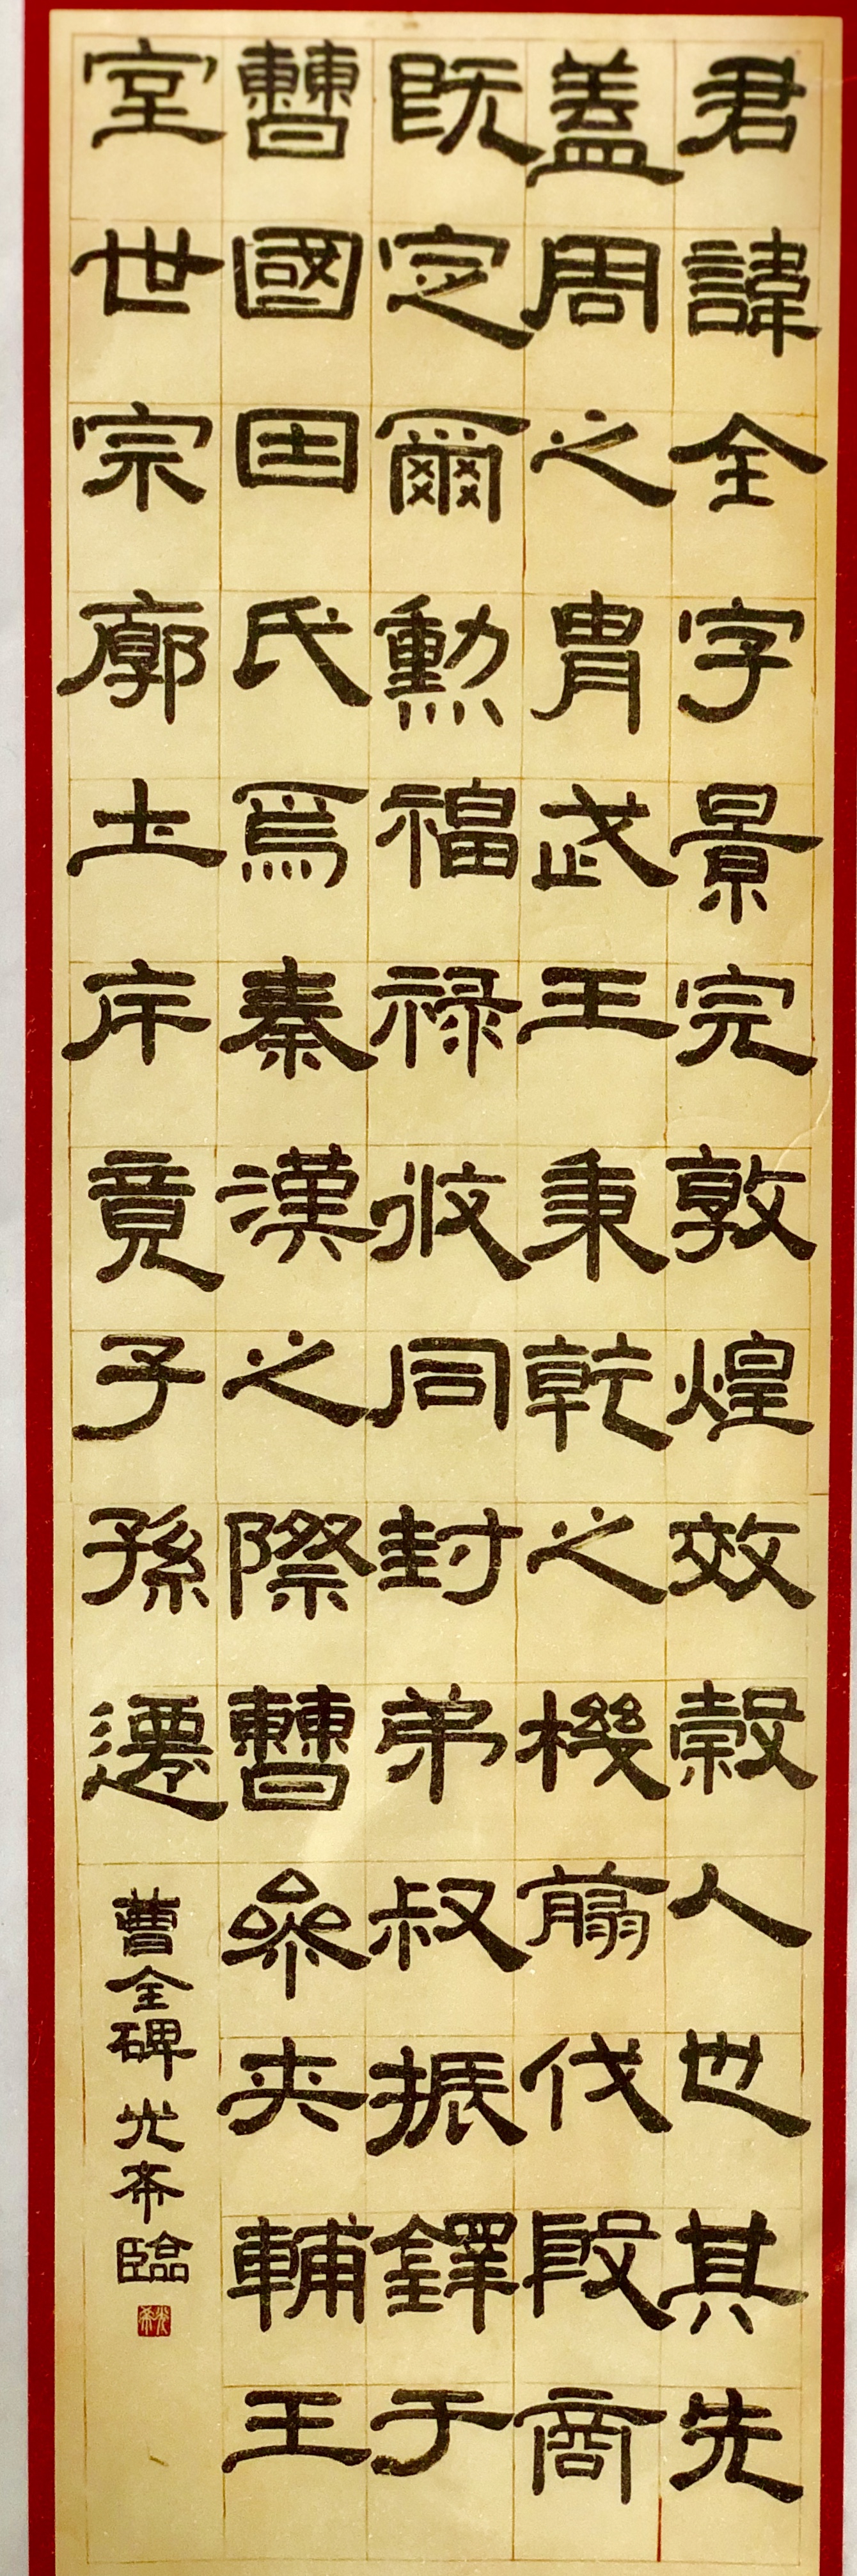 君諱全字景完敦煌效穀人也其先
蓋周之胄武王秉乾之機翦伐殷商
既定爾勳福祿攸同封弟叔振鐸于
曹國因氏焉秦漢之際曹參夾輔王
室世宗廓土斥竟子孫遷
曹全碑 光希臨
光希